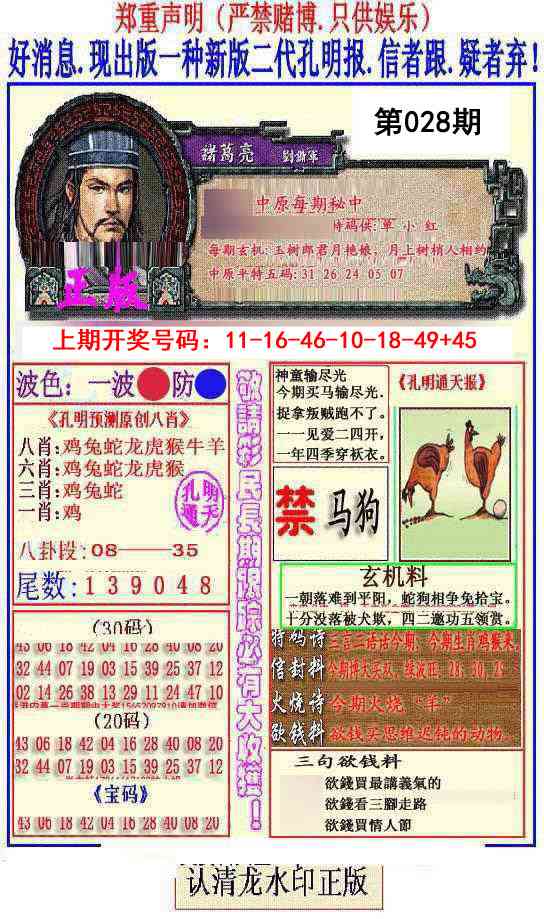 郑重声明（严禁赌博.只供娱乐）
好消息.现出版一种新版二代孔明报.信者跟.疑者弃！
第028期
諸葛亮
劉鎦军
中原每期秘中
特码供:单 小 红
每期玄机:玉树郎君月艳娘，月上树梢人相约
中原平特五码:31 26 24 05 07
正版
上期开奖号码：11-16-46-10-18-49+45
波色：一波 防
《孔明预测原创八肖》
八肖:鸡兔蛇龙虎猴牛羊
六肖:鸡兔蛇龙虎猴
三肖:鸡兔蛇
一肖:鸡
孔明
通天
八卦段:08——35
尾数:139048
敬請彩民長期跟踪必有大收獲！
神童输尽光
今期买马输尽光.
捉拿叛贼跑不了。
一一见爱二四开,
一年四季穿袄衣。
禁 马狗
《孔明通天报》
玄机料
一朝落难到平阳，蛇狗相争兔拾宝。
十分没落被犬欺，四二邀功五领赏。
特码诗 三言二语话今期，今期生肖鸡猴来.
信封料
火烧诗 今期火烧“羊”
欲钱料 欲钱买思维迟钝的动物.
(30码)
43 06 18 42 04 16 28 40 08 20
32 44 07 19 03 15 39 25 37 12
02 14 26 38 13 29 11 24 47 10
(20码)
43 06 18 42 04 16 28 40 08 20
32 44 07 19 03 15 39 25 37 12
《宝码》
43 06 18 42 04 16 28 40 08 20
三句欲錢料
欲錢買最講義氣的
欲錢看三腳走路
欲錢買情人節
认清龙水印正版